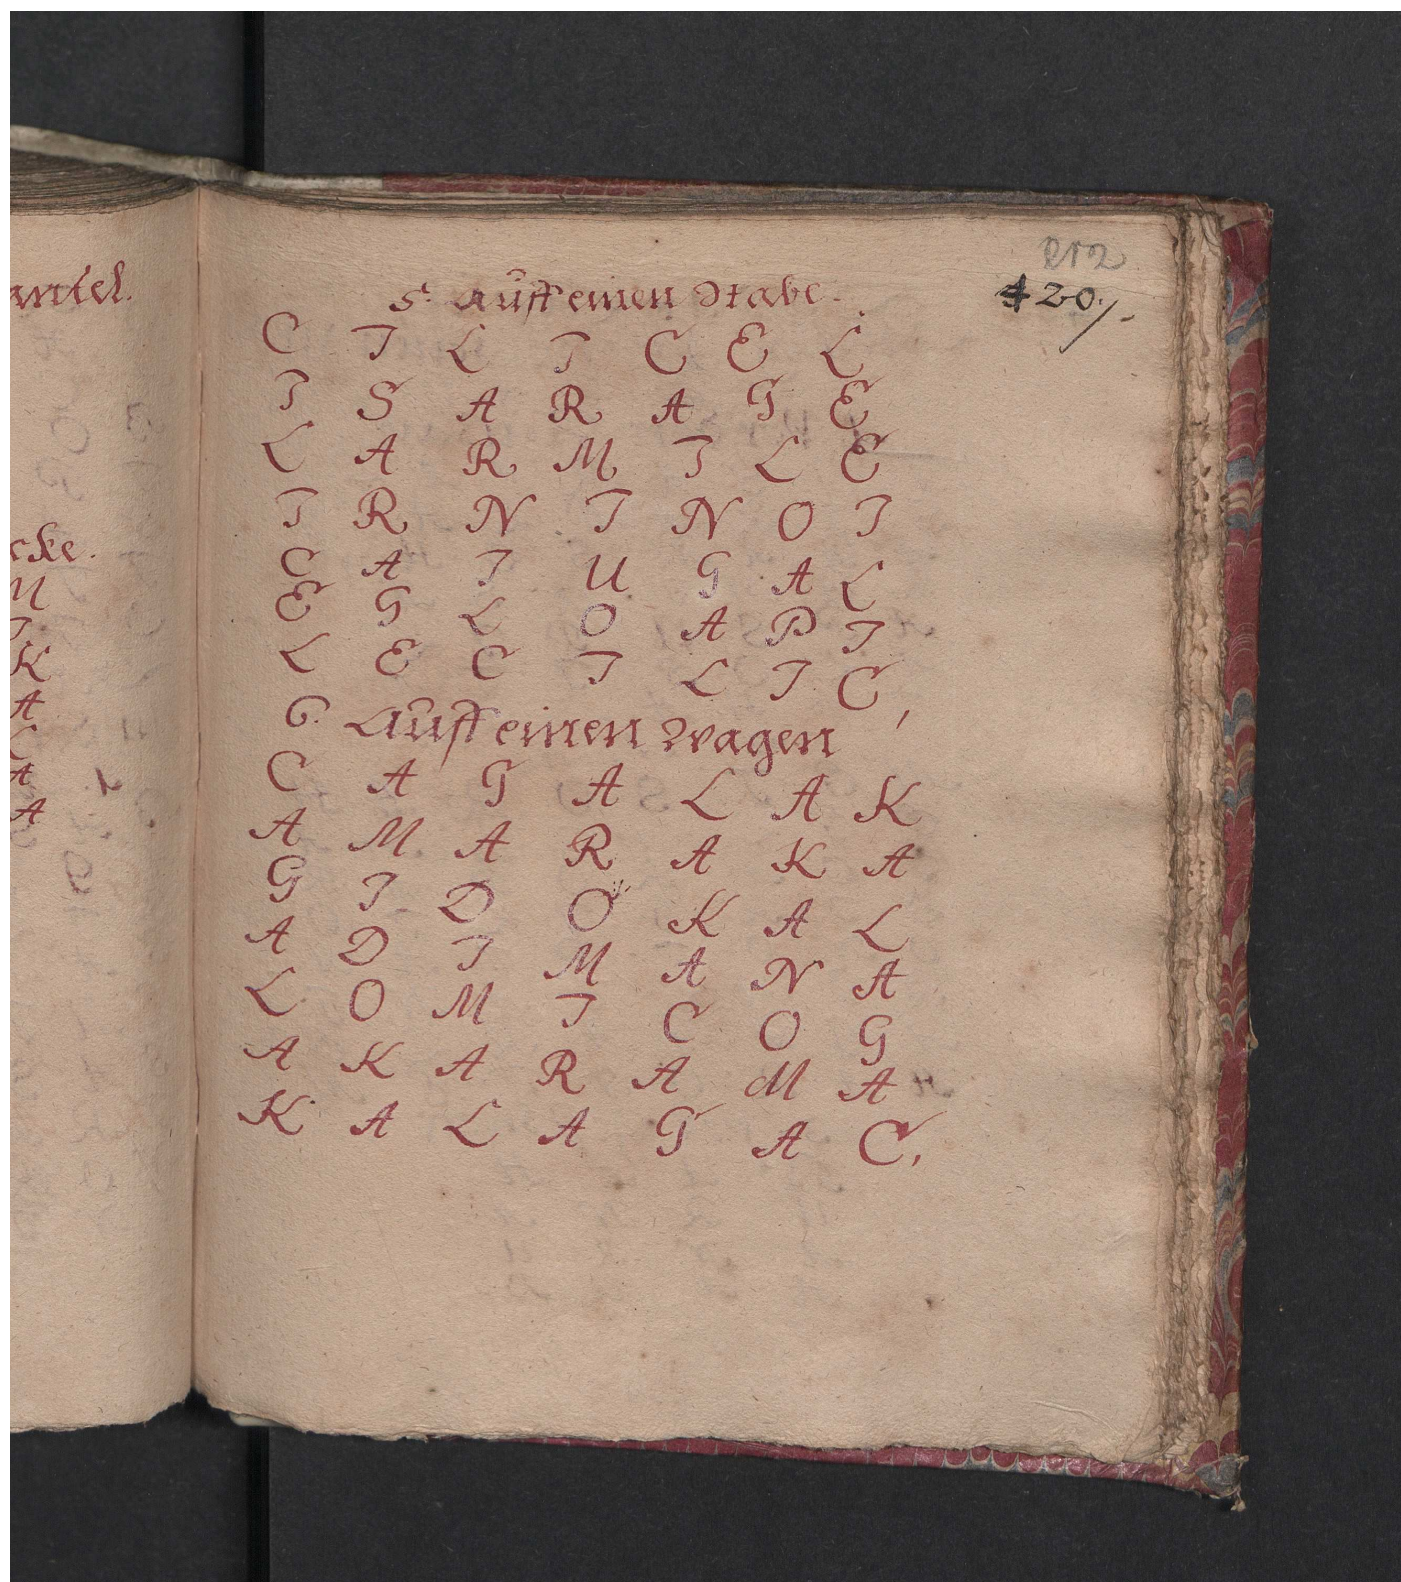 antel.
cke.
M
I
K
A
C
A
A
212
420.
5. Auff einen Stabe.
C I L I C E L
I S A R A G E
L A R M I L E
I R N I N O I
C A I U G A L
E G L O A P I
L E C I L I C,
6. Auff einen Wagen
C A G A L A K
A M A R A K A
G I D O K A L
A D I M A N A
L O M I C O G
A K A R A M A
K A L A G A C,